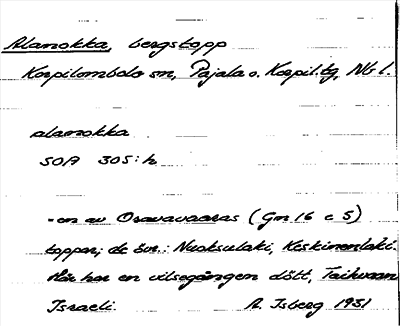 Alanokka, bergstopp
Korpilombolo sn, Pajala o. Korpil. tg, Nb l.
alanokka
SOA 305:h
-en av Oravavaaras (Gm 16 c 5)
toppar; de övr.: Nuoksulaki, Keskinenlaki.
Här har en vilsegången dött, Taikuran
Israeli. A. Isberg 1931